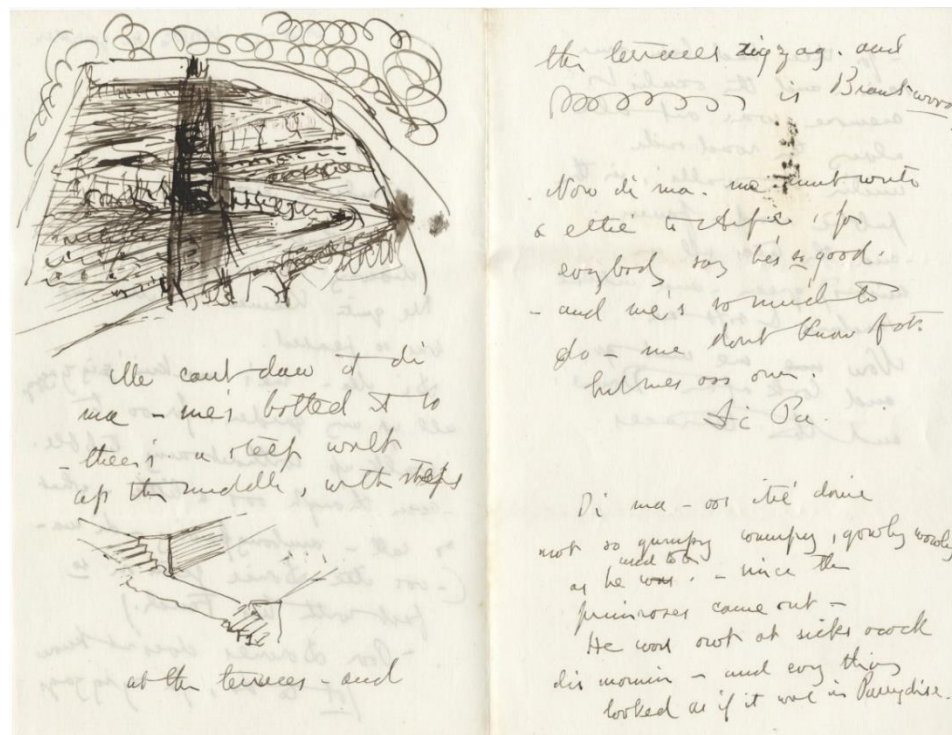 Me cant daw it di
ma – me's botted it so
– thee's a steep walk
up the middle, with steps
at the terraces – and
the terraces zigzag. and
is Brantwood
Now di ma. me must write
a ettie to for
evybody say he's so good.
– and me's so much to
do – me dont know fot.
but mes oos own.
Di Pa.
Di ma – oos itie' donie
not so gumpy wumpy, gowly wowly
and
as he was. – since the
primroses came out –
He was out at sicks ocock
dis mornin – and evy thing
looked as if it was in Pawydise.